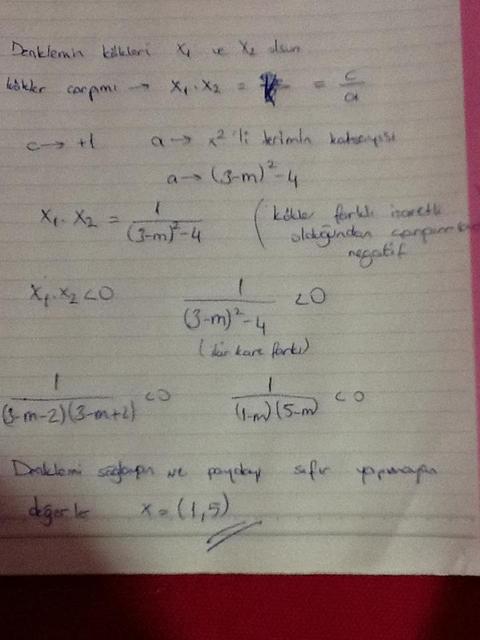 Denklemin kökleri x₁ ve x₂ olsun
kökler çarpımı → x₁.x₂ = = c/a
c → +1 a → x²'li terimin katsayısı
a → (3-m)²-4
x₁.x₂ = 1/((3-m)²-4) (kökler farklı işaretli
olduğundan çarpımları
negatif
x₁.x₂<0 1/((3-m)²-4) <0
(iki kare farkı)
1/((3-m-2)(3-m+2)) <0 1/((1-m)(5-m)) <0
Denklemi sağlayan ve paydayı sıfır yapmayan
değerler x = (1,5)